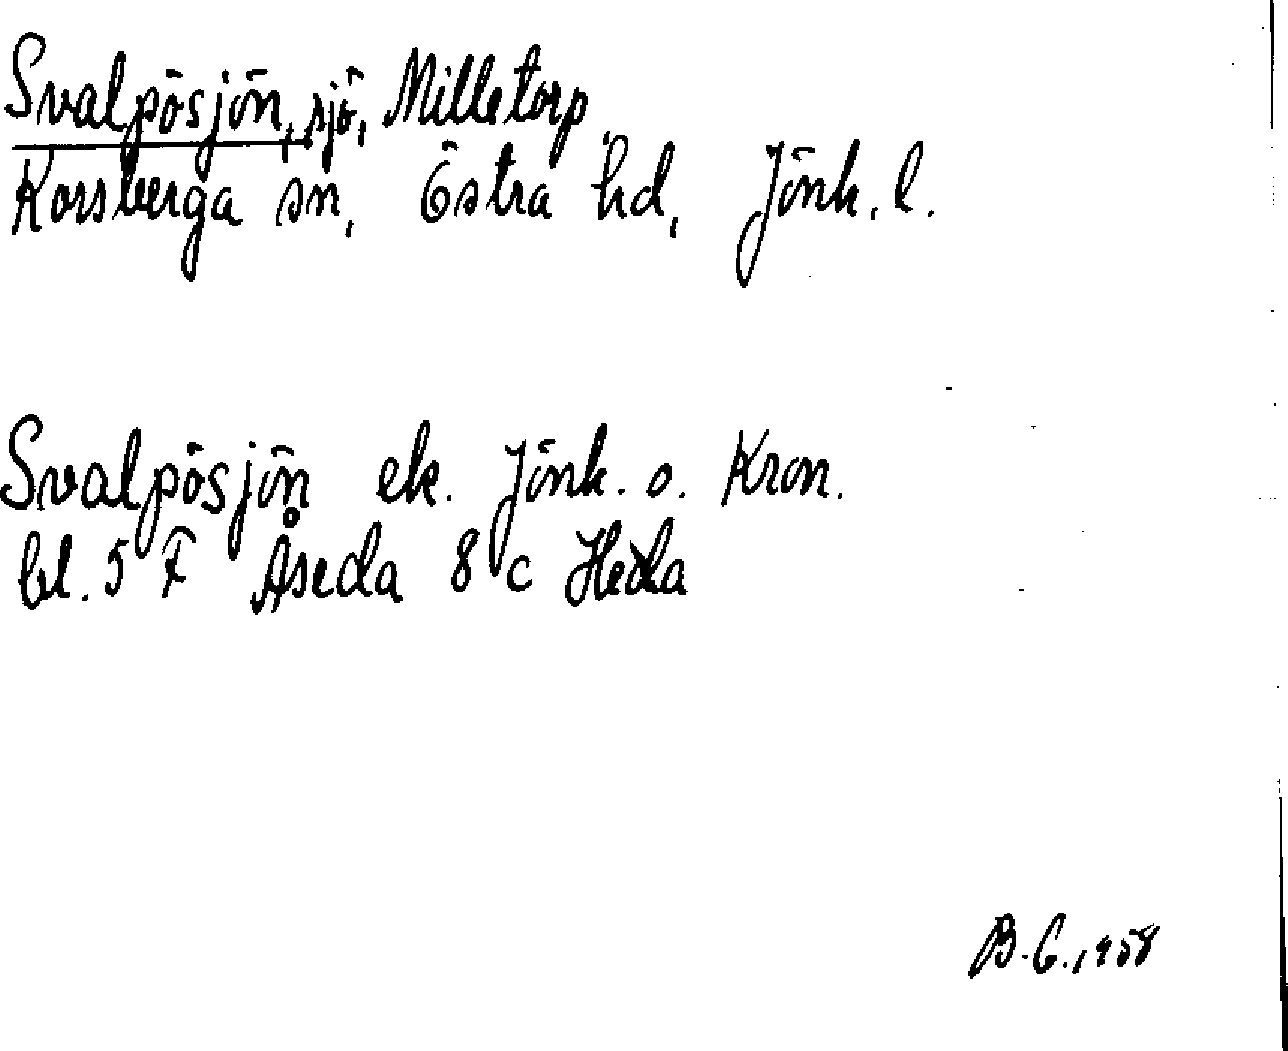 Svalpösjön, sjö, Milletorp
Korsberga sn, Östra hd, Jönk. l.
Svalpösjön ek. Jönk. o. Kron.
bl. 5 F Åseda 8 c Hedla
B.G., 1958